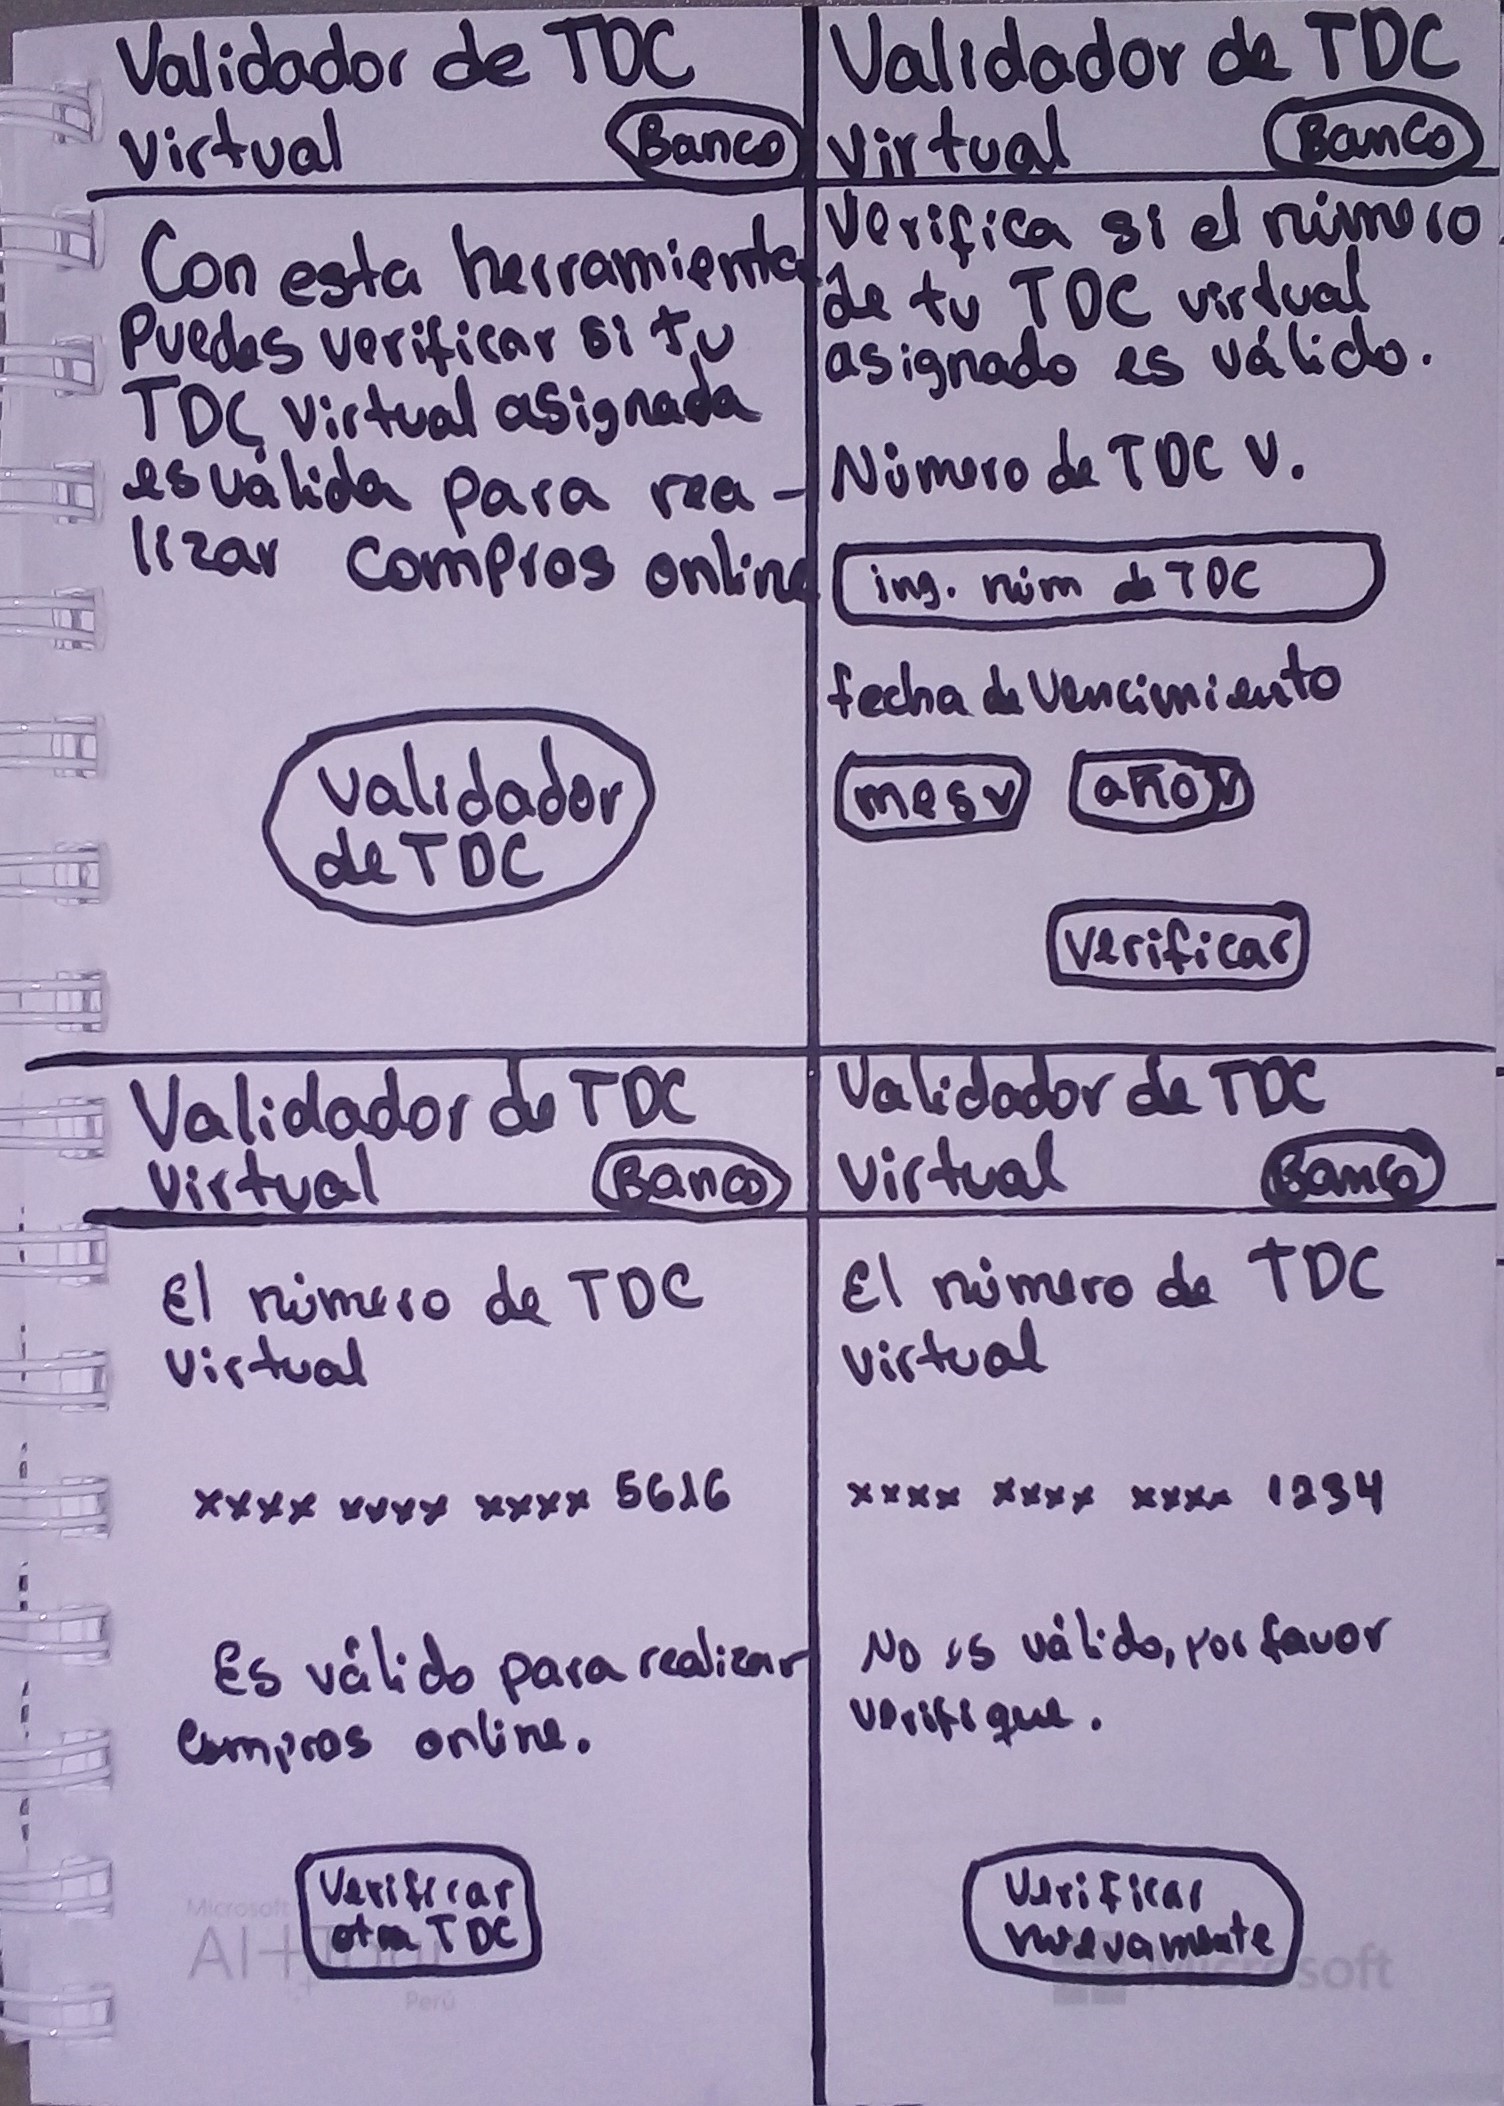 Validador de TDC
Virtual
Banco
Con esta herramienta
Puedes verificar si tu
TDC virtual asignada
es válida para rea-
lizar compras online
Validador
de TDC
Validador de TDC
Virtual
Banco
Verifica si el número
de tu TDC virtual
asignado es válido.
Número de TDC V.
ing. núm de TDC
fecha de Vencimiento
mes v
año v
Verificar
Validador de TDC
Virtual
Banco
El número de TDC
Virtual
xxxx xxxx xxxx 5616
Es válido para realizar
compras online.
Verificar
otra TDC
Microsoft
AI+Tour
Perú
Validador de TDC
Virtual
Banco
El número de TDC
Virtual
xxxx xxxx xxxx 1234
No es válido, por favor
verifique.
Verificar
nuevamente
Microsoft